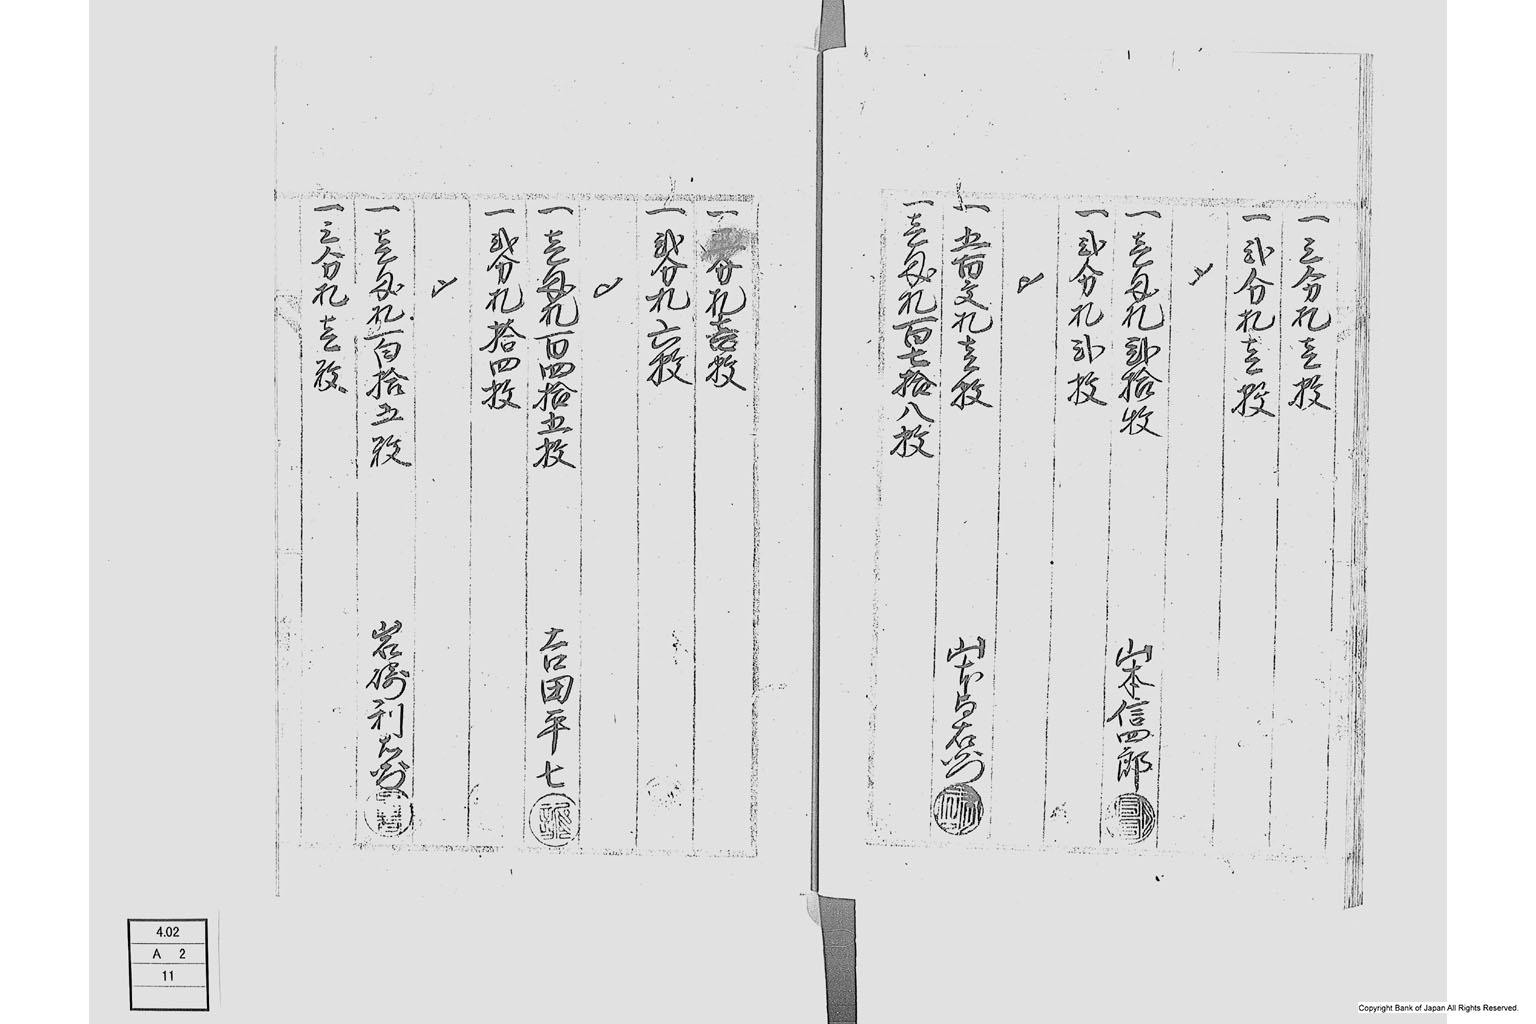 一三分札壱枚
一弐分札壱枚
一壱匁札弐拾枚
山本信四郎
一弐分札弐枚
一五百文札壱枚
一壱匁札百七拾八枚
一三分札壱枚
一弐分札六枚
一壱匁札百四拾五枚
吉田平七
一弐分札拾四枚
一壱匁札百拾五枚
岩崎利左衛門
一三分札壱枚
4.02
A 2
11
Copyright Bank of Japan All Rights Reserved.